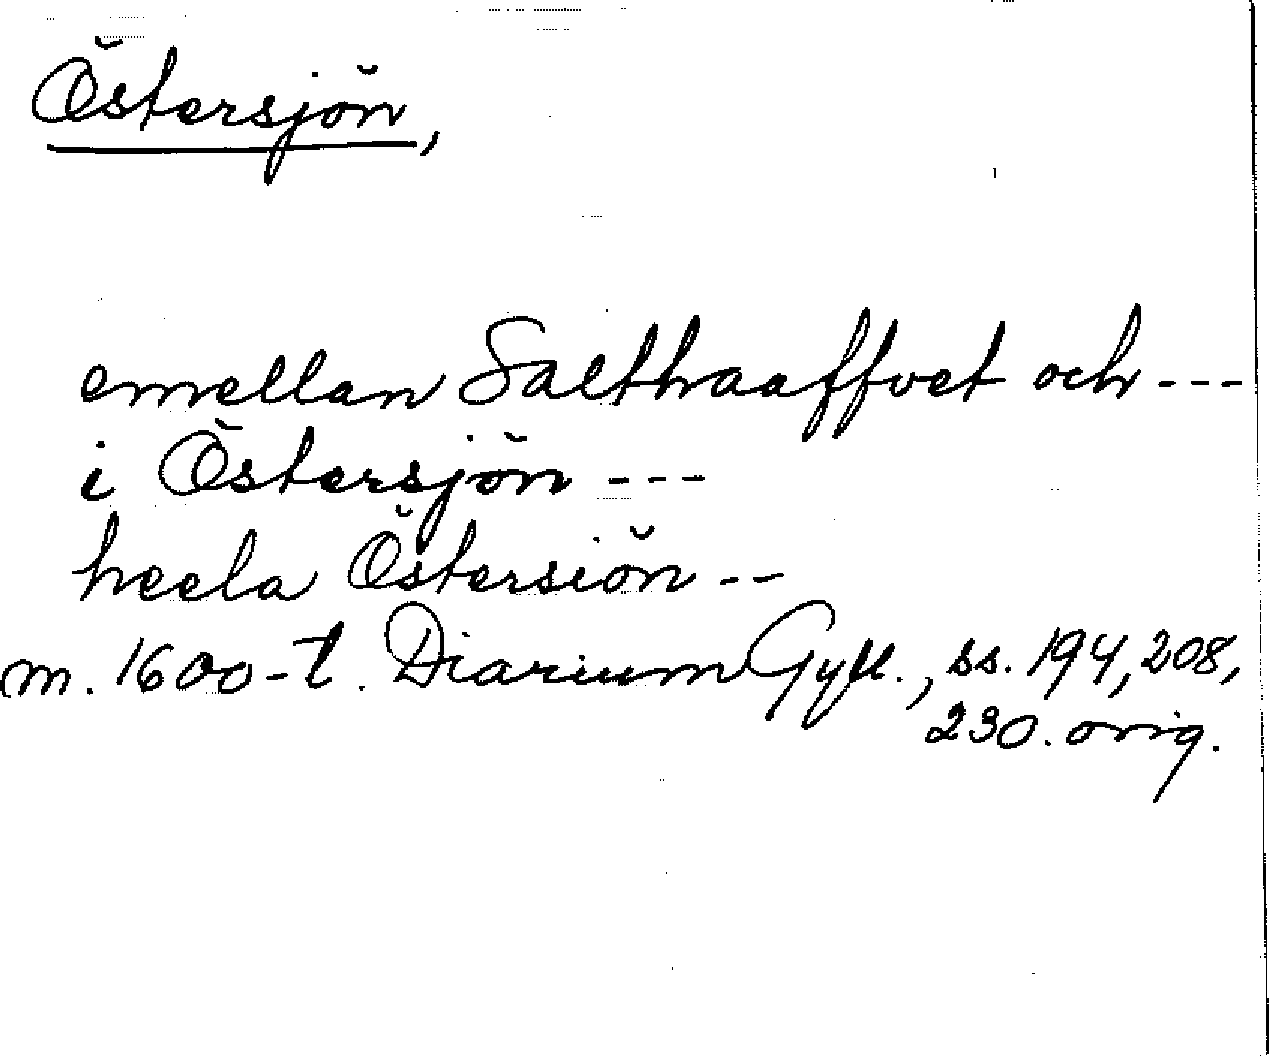 Östersjön,
emellan Salthaaffvet och ---
i Östersjön ---
heela Östersiön --
m. 1600-t. Diarium Gyll., ss. 194, 208,
230. orig.